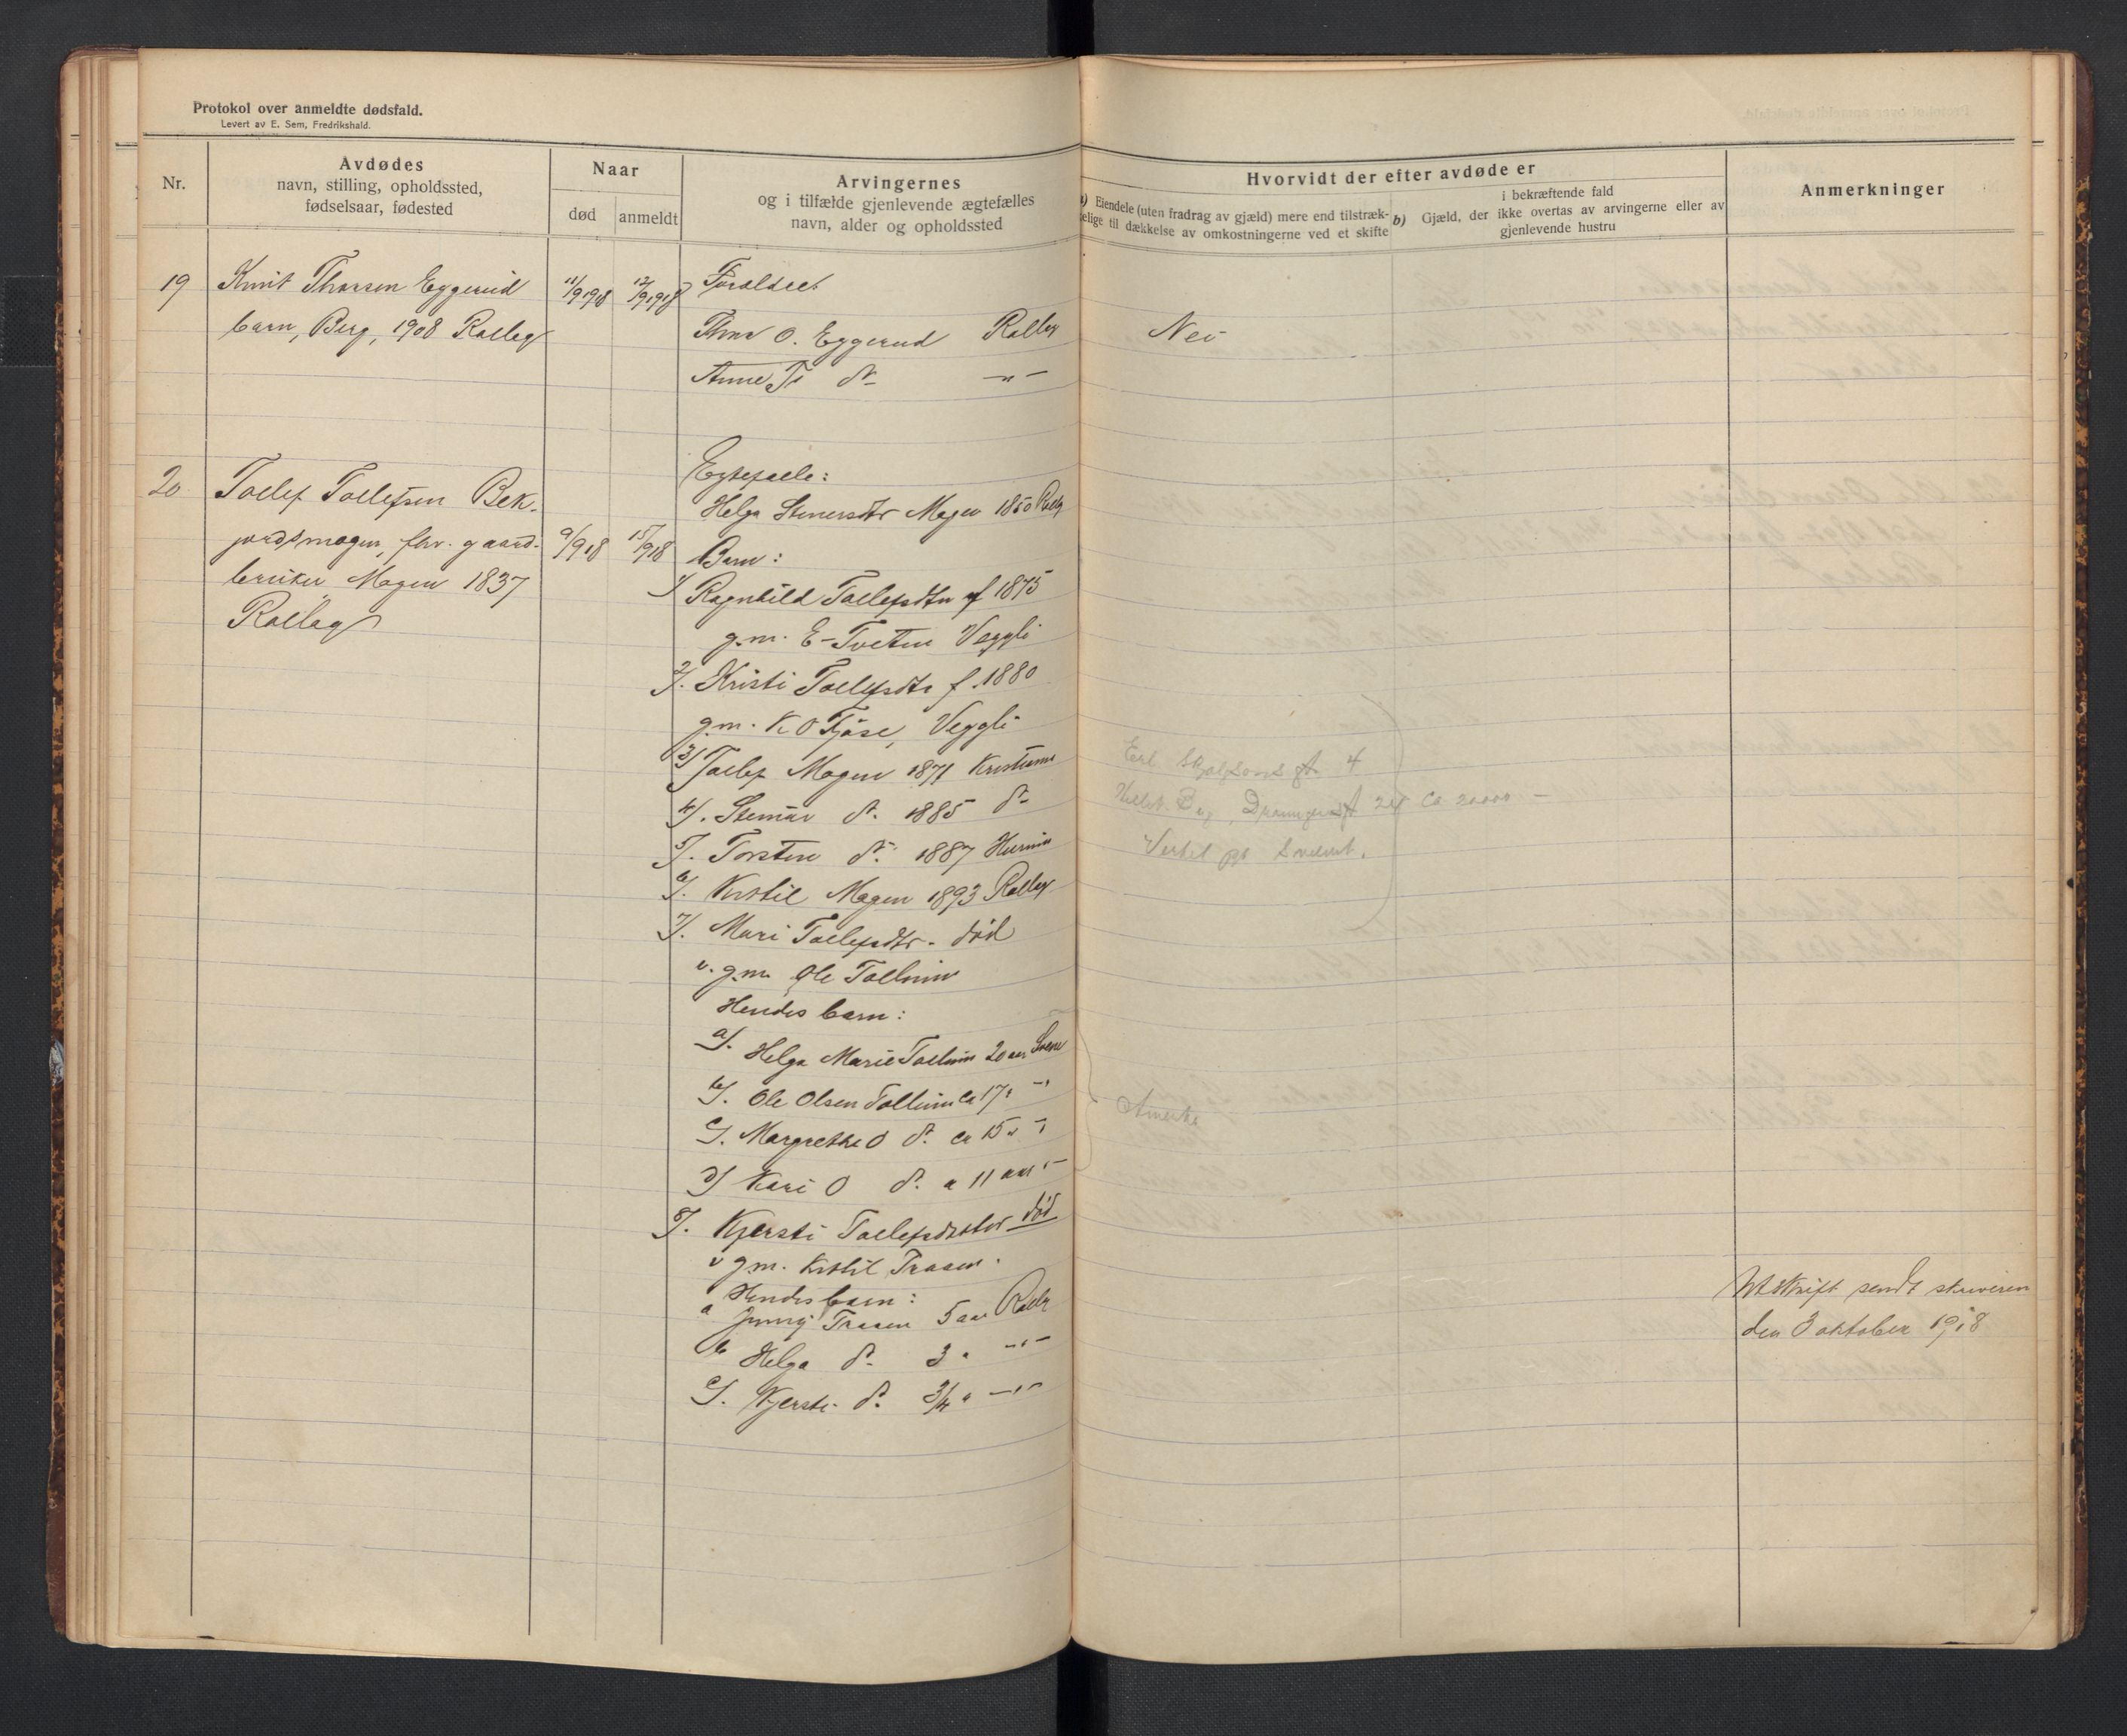 Protokol over anmeldte dødsfald.
Levert av E. Sem, Fredrikshald.
Nr.
Avdødes
navn, stilling, opholdssted,
fødselsaar, fødested
Naar
død
anmeldt
Arvingernes
og i tilfælde gjenlevende ægtefælles
navn, alder og opholdssted
Hvorvidt der efter avdøde er
a) Eiendele (uten fradrag av gjæld) mere end tilstræk-
kelige til dækkelse av omkostningerne ved et skifte
i bekræftende fald
b) Gjæld, der ikke overtas av arvingerne eller av
gjenlevende hustru
Anmerkninger
19
Knut Thorsen Eggerud
barn, Berg, 1908 Rollag
11/9 1918
12/9 1918
Foreldre:
Thor O. Eggerud Rollag
Anne T. do —"—
Nei
20
Tollef Tollefsen Bek-
jordsmogen, fhv. gaard-
bruker Mogen 1837
Rollag
9/9 18
15/9 18
Egtefælle:
Helga Stenersdtr Mogen 1850 Rollag
Barn:
1/ Ragnhild Tollefsdtr f 1875
g.m. E. Tveten Veggli
2/. Kristi Tollefsdtr f. 1880
g.m. K O Fjøse, Veggli
3/ Tollef Mogen 1871 Kristiania
4/. Stenar do. 1885 do
5/. Torsten do. 1887 Hurum
6/. Kittil Mogen 1893 Rollag
7/. Mari Tollefsdtr. død
v. g.m. Ole
Hendes barn:
a/. Helga Marie 20 aar
b/. Ole Olsen ca 17 " "
c/. Margrethe O do. ca 15 " "
d/ Kari O do. ca 11 aar "
8/. Kjersti Tollefsdatter død
v g.m. Kittil Traaen.
Hendes barn:
a Jenny Traaen 5 aar Rollag
b Helga do. 3 " —"—
c/. Kjersti do. 3/4 " —"—
gt 4
ca 20000 —
Amerika
Utskrift sendt skriveren
den 3 oktober 1918